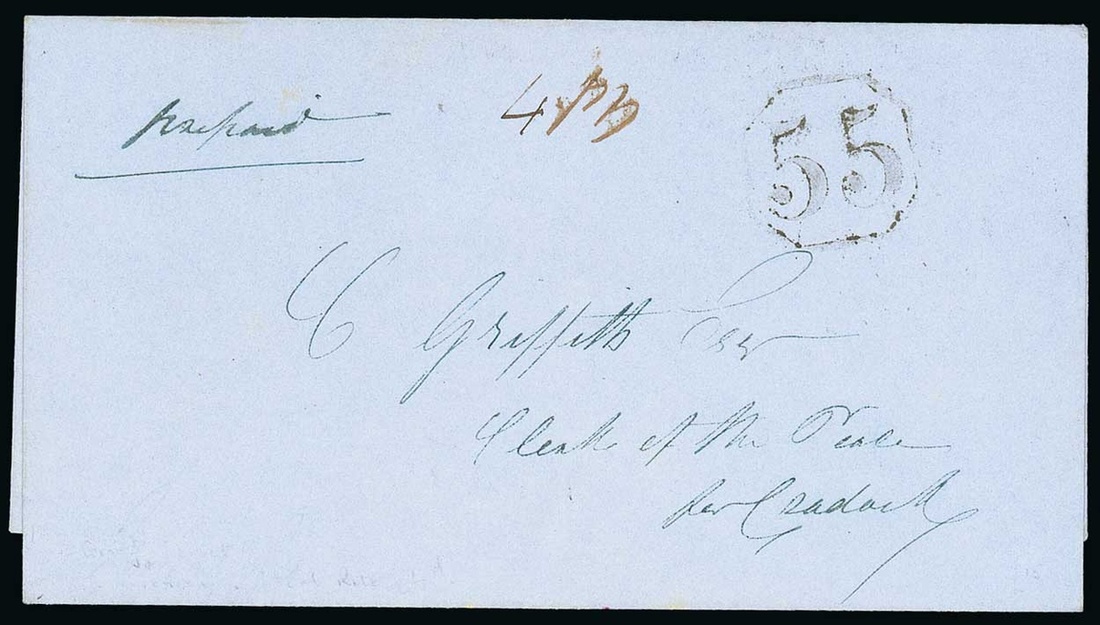 prepaid
4
55
C Griffith Esqr
Clerk of the Peace
for Cradock